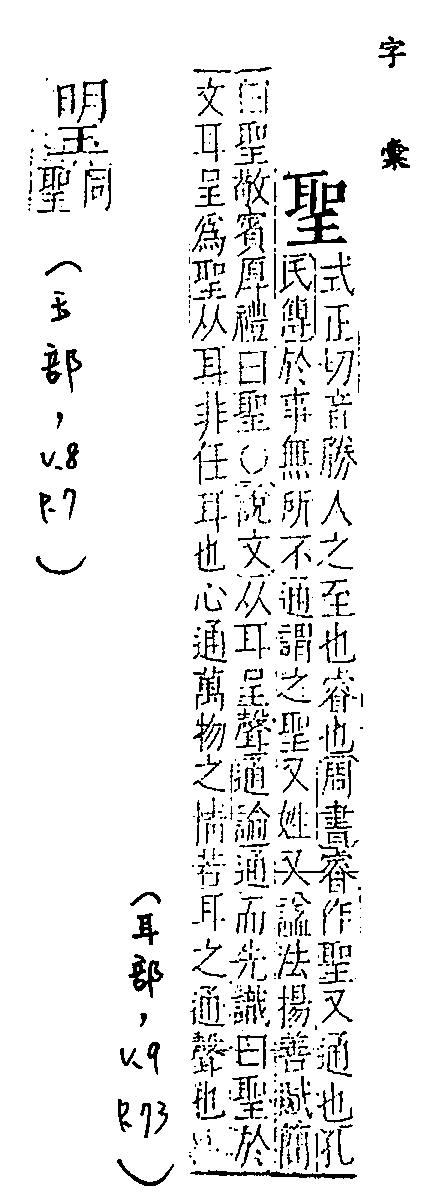 字彙
聖
式正切音勝人之至也睿也周書睿作聖又通也孔
氏傳於事無所不通謂之聖又姓又諡法揚善賦簡
曰聖敬賓厚禮曰聖○說文从耳呈聲通論通而先識曰聖於
文耳呈爲聖从耳非任耳也心通萬物之情若耳之通聲也
(耳部, V.9 P.73)
同聖
(玉部, V.8 P.7)